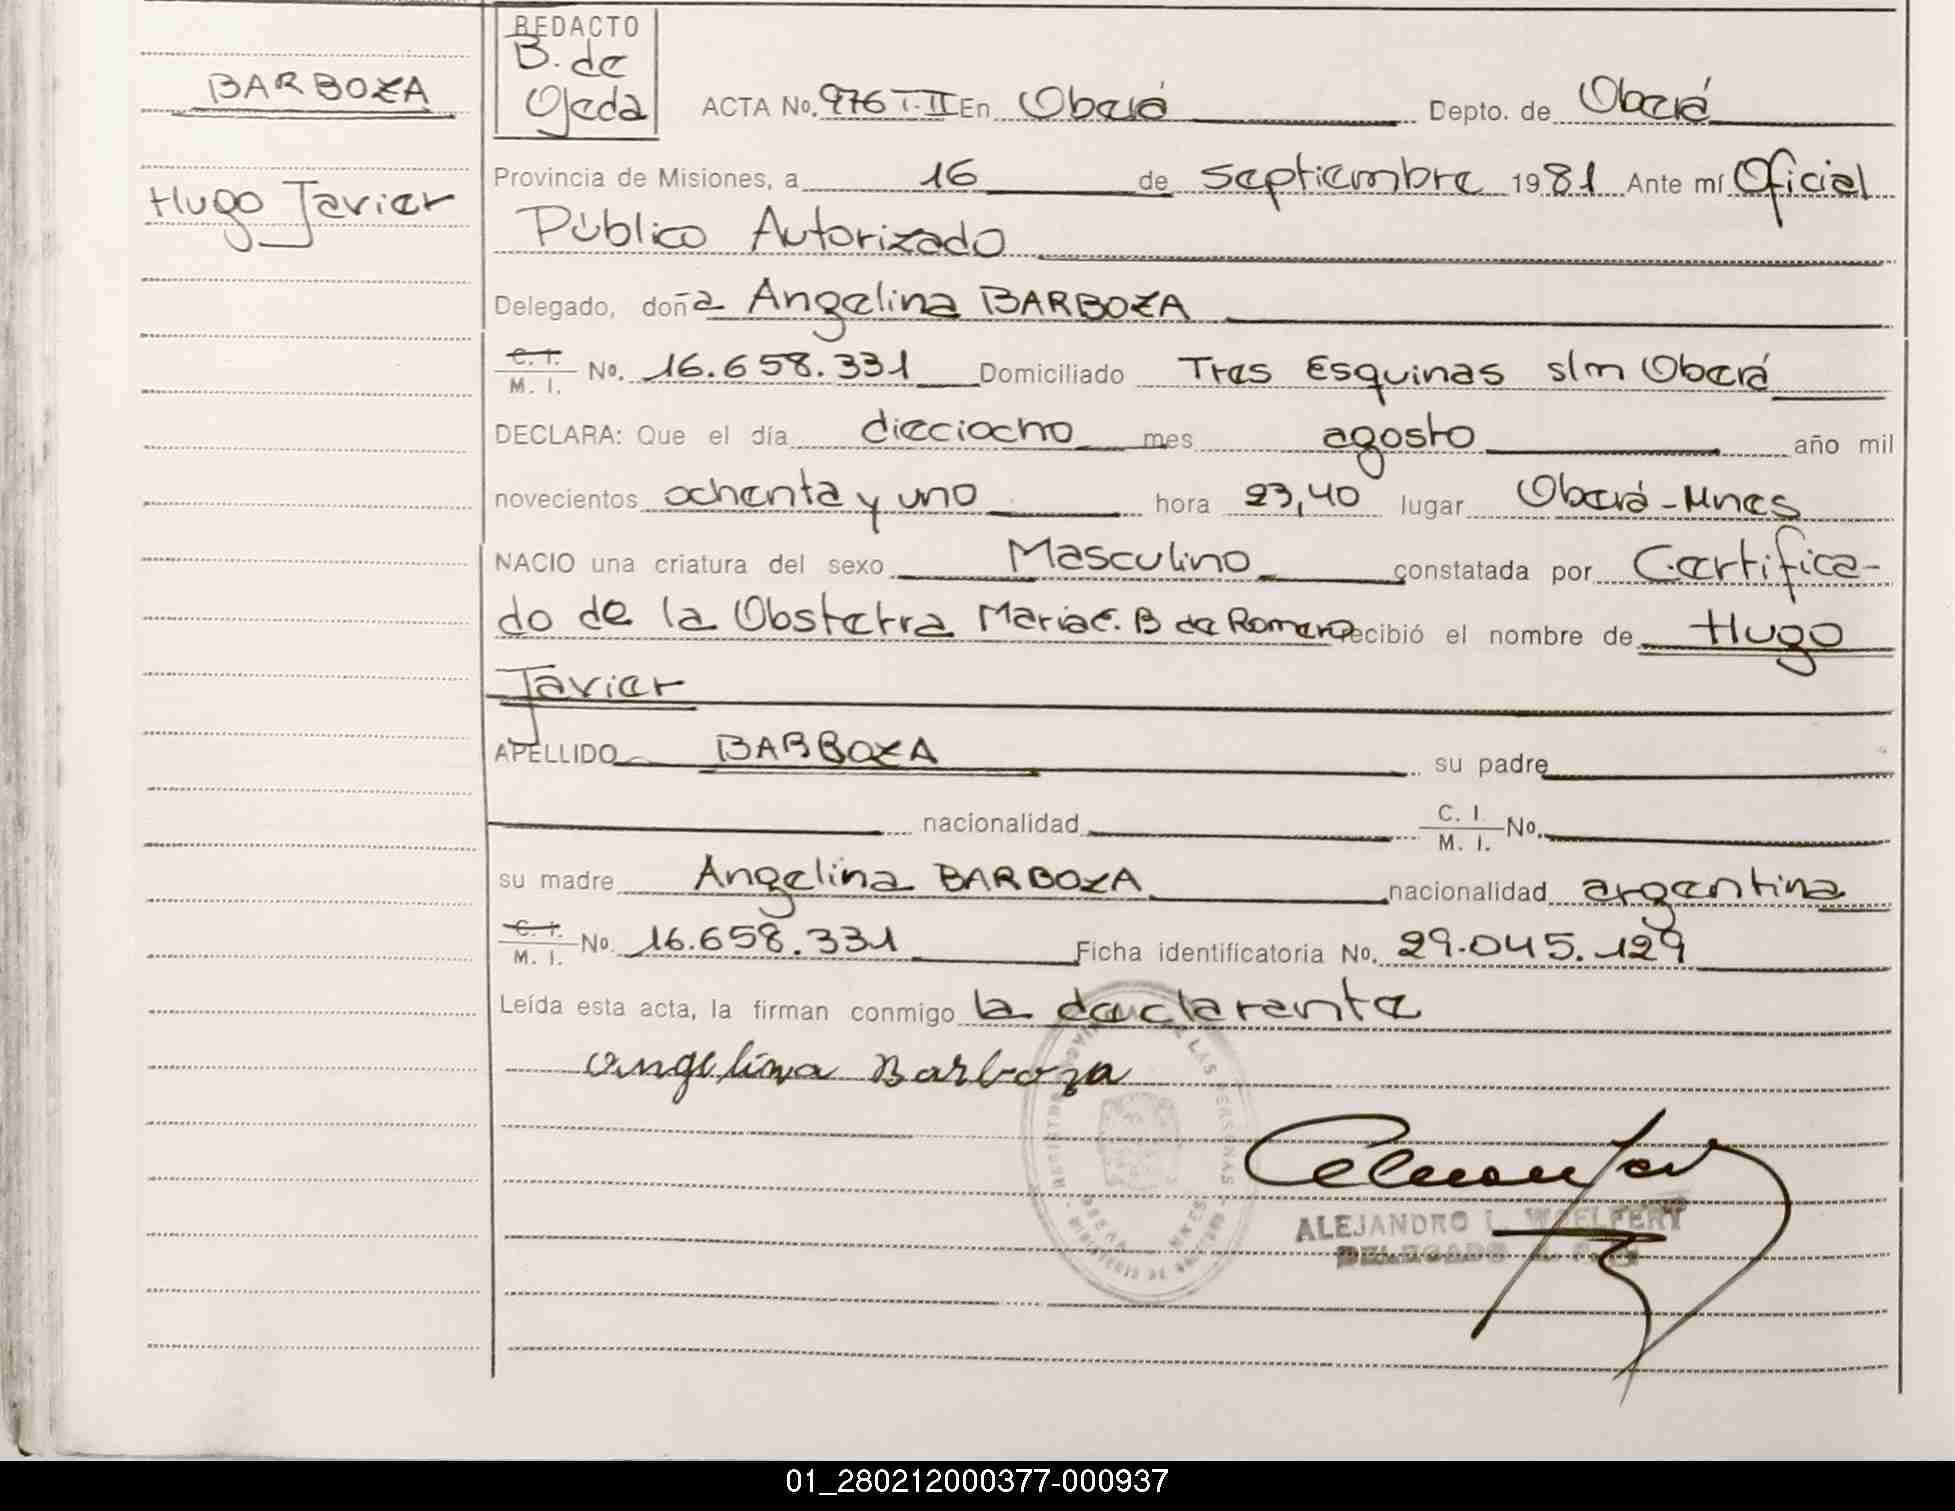 BARBOZA
Hugo Javier
REDACTO
B. de
Ojeda
ACTA No. 976 T. II En Oberá Depto. de Oberá
Provincia de Misiones, a 16 de septiembre 1981 Ante mí Oficial
Público Autorizado
Delegado, doña Angelina BARBOZA
C. I.
M. I. No. 16.658.331 Domiciliado Tres Esquinas s/m Oberá
DECLARA: Que el día dieciocho mes agosto año mil
novecientos ochenta y uno hora 23,40 lugar Oberá-Mnes
NACIO una criatura del sexo Masculino constatada por Certifica-
do de la Obstetra Maria E. B de Romero recibió el nombre de Hugo
Javier
APELLIDO BARBOZA su padre
nacionalidad C. I.
M. I. No.
su madre Angelina BARBOZA nacionalidad argentina
C. I.
M. I. No. 16.658.331 Ficha identificatoria No. 29.045.129
Leída esta acta, la firman conmigo la declarante
Angelina Barboza
LAS PERSONAS
OBERA MNES
ALEJANDRO L. WOELFERT
DELEGADO
01_280212000377-000937